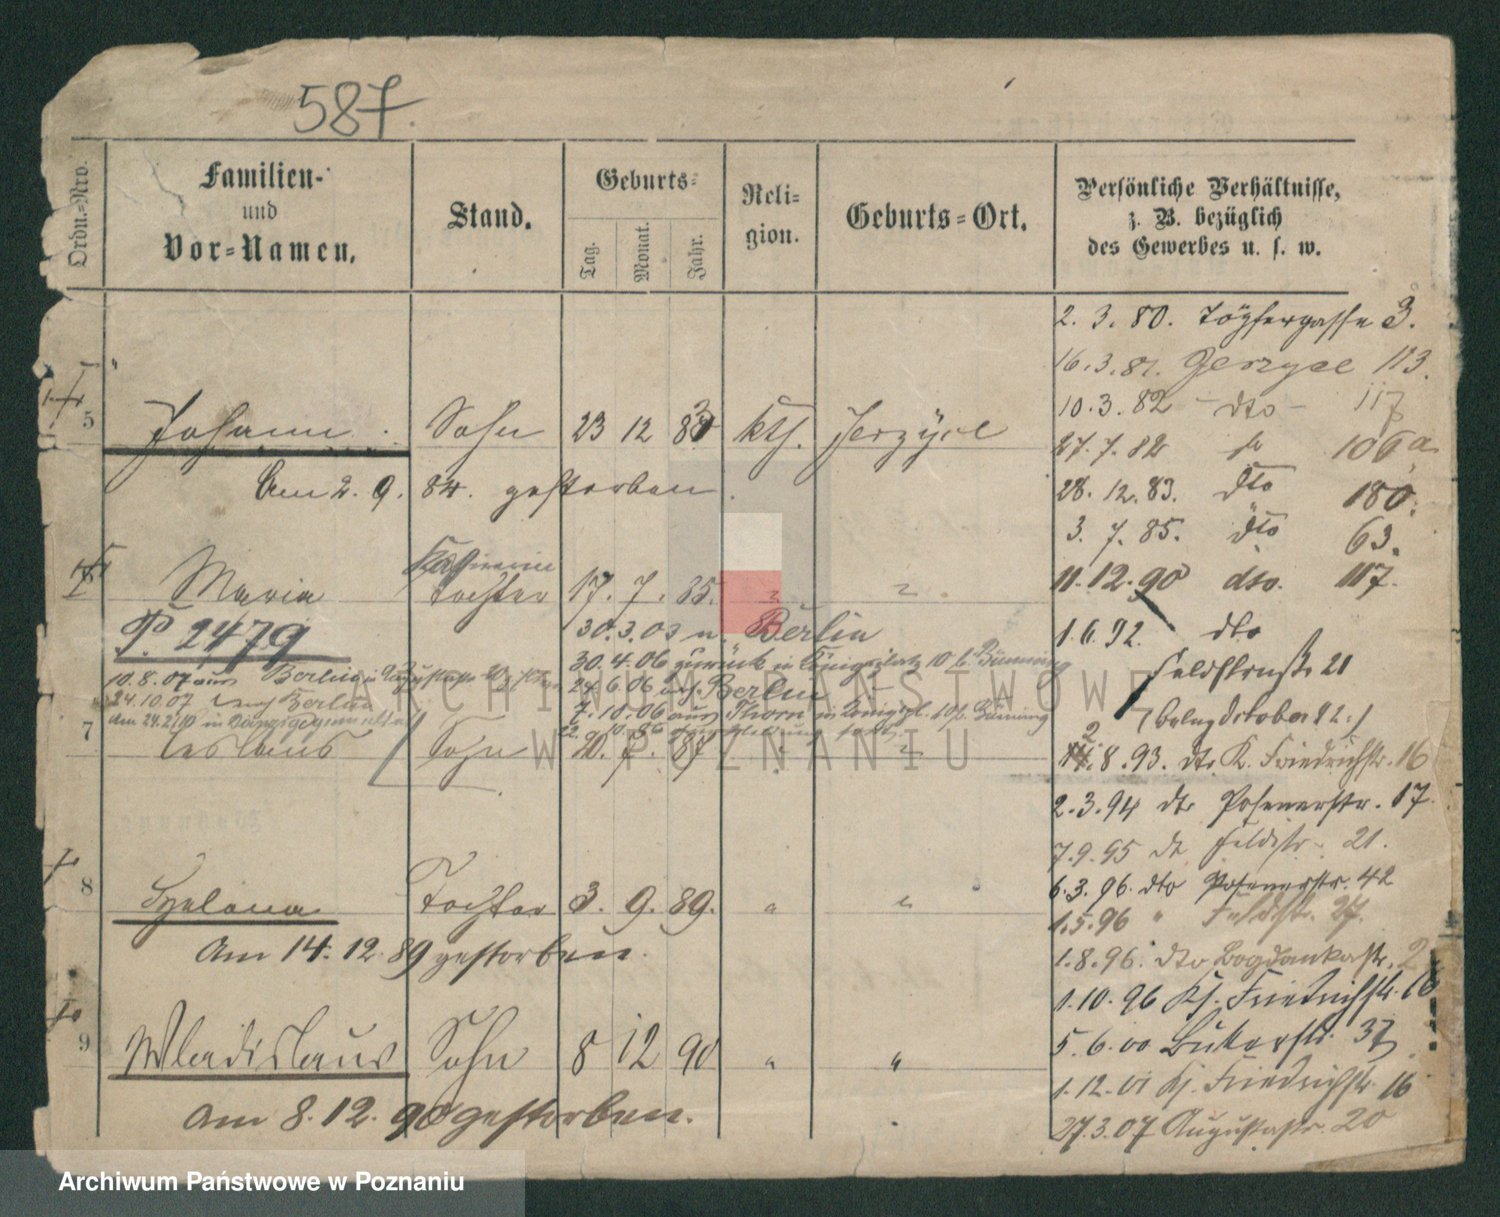 587.
Ordn.-Nro.
Familien-
und
Vor-Namen.
Stand.
Geburts-
Tag.
Monat.
Jahr.
Reli-
gion.
Geburts-Ort.
Persönliche Verhältnisse,
z. B. bezüglich
des Gewerbes u. s. w.
5 Johann. Sohn 23 12 83 kth. Jerzyce
Am 2. 9. 84. gestorben.
Maria Tochter 17. 7. 85. " "
P. 2479
30. 3. 03 n. Berlin
30. 4. 06 zurück in Königsplatz 10 b. Bünning
10. 8. 07 aus Berlin in
24. 6. 06 nach Berlin
24. 10. 07 nach Berlin
7. 10. 06 aus Thorn in Königspl. 10 b. Bünning
7 Ceslaus Sohn 20. 7. 87 " "
8 Helena Tochter 3. 9. 89. " "
Am 14. 12. 89 gestorben.
9 Wladislaus Sohn 8 12 90 " "
Am 8. 12. 90 gestorben.
2. 3. 80. Töpfergasse 3.
16. 3. 81. Jerzyce 113.
10. 3. 82 - dto - 117
27. 7. 82 106a
28. 12. 83. dto 180.
3. 7. 85. dto 63.
11. 12. 90 dto. 117.
1. 6. 92. dto
Feldstraße 21
8. 93. dto K. Friedrichstr. 16
2. 3. 94 dto Posenerstr. 17.
7. 9. 95 dto Feldstr. 21.
6. 3. 96. dto Posenerstr. 42
1. 5. 96 " Feldstr. 27.
1. 8. 96. dto Bogdankastr. 2
1. 10. 96 K. Friedrichstr. 16
5. 6. 00 Bukerstr. 37
1. 12. 01 K. Friedrichstr. 16
27. 3. 07 Augustastr. 20
ARCHIWUM PAŃSTWOWE
W POZNANIU
Archiwum Państwowe w Poznaniu